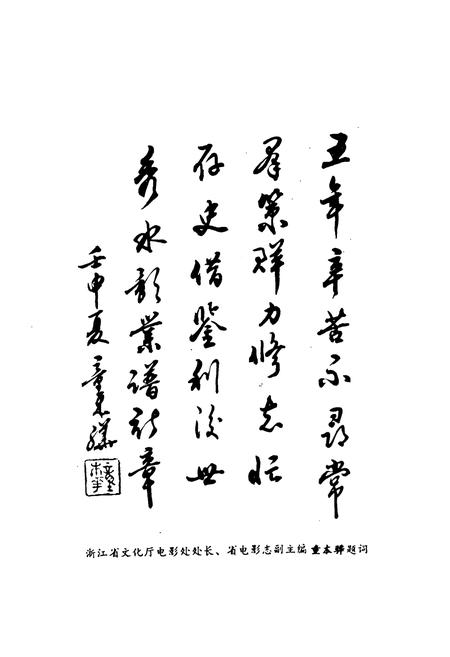 五年辛苦不尋常
羣策群力修志忙
存史借鉴利後世
秀水影業谱新章
壬申夏 童本骅
浙江省文化厅电影处处长、省电影志副主编 童本骅题词